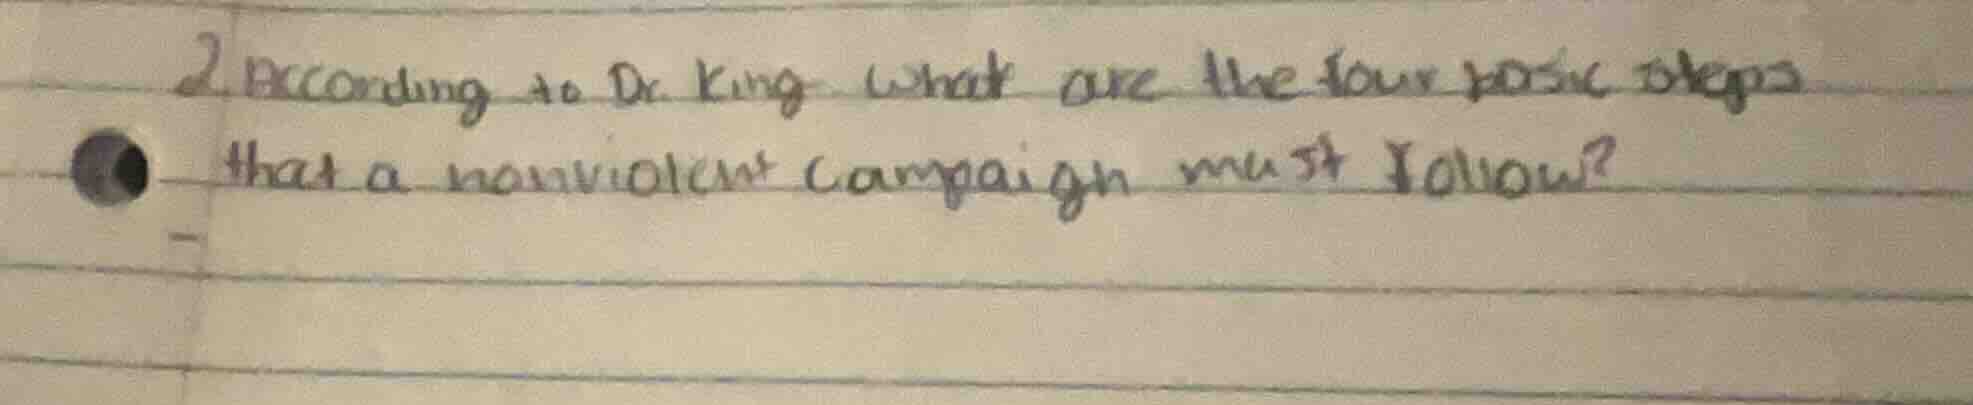 2. According to Dr. King what are the four basic steps
that a nonviolent campaign must follow?
-